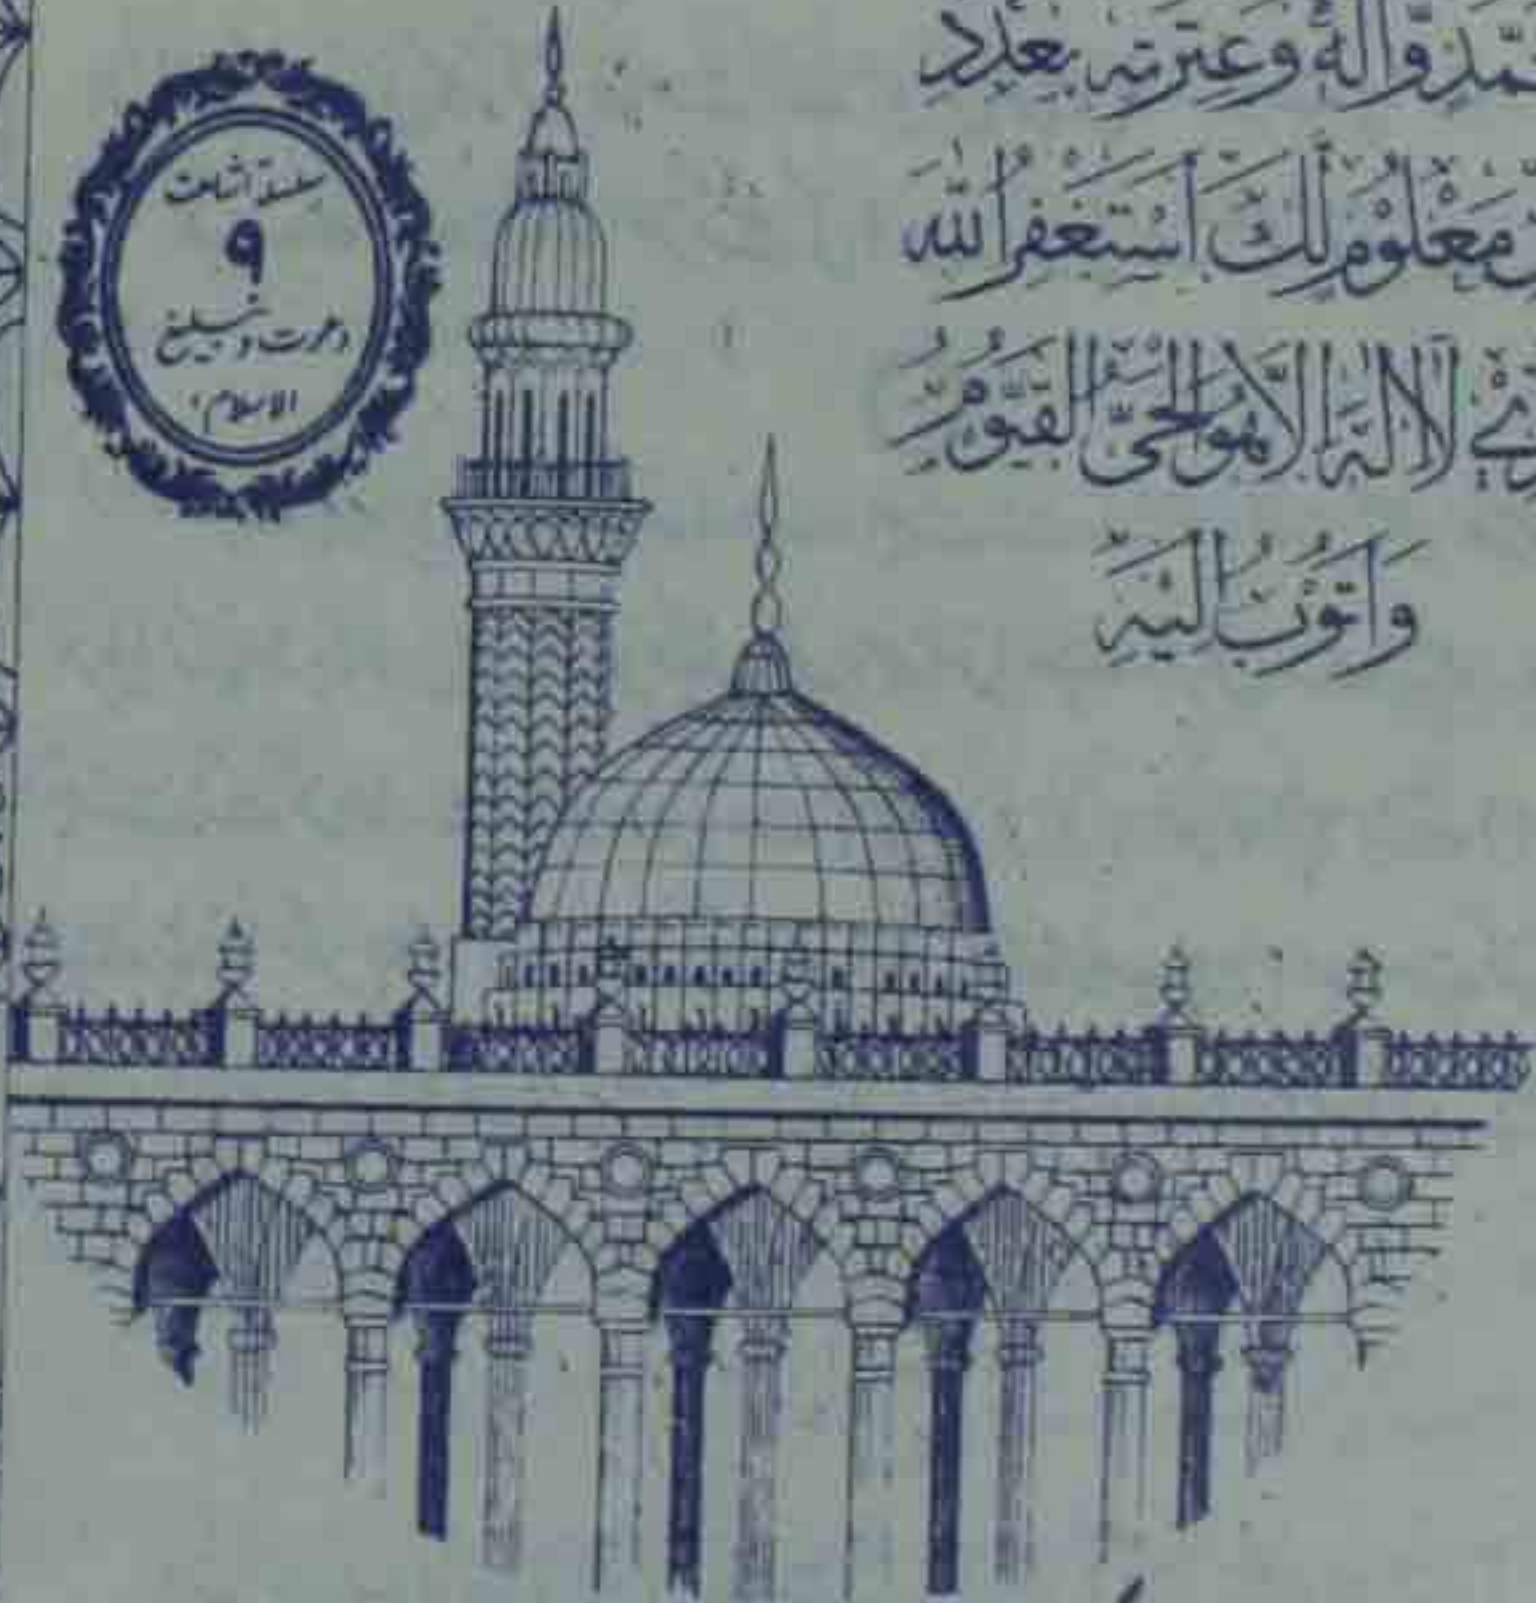 سلسلۂ اشاعت
۹
دعوت و تبلیغ
الاسلام
وَّاٰلِهٖ وَعِتْرَتِهٖ بِعَدَدِ
مَعْلُوْمٍ لَّكَ اَسْتَغْفِرُ اللّٰهَ
لَآ اِلٰهَ اِلَّا هُوَ الْحَيُّ الْقَيُّوْمُ
وَاَتُوْبُ اِلَيْهِ